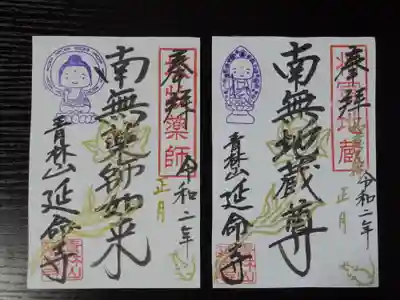 奉拝
薬師
令和二年
正月
南無薬師如来
青林山延命寺
奉拝
地蔵
令和二年
正月
南無地蔵尊
青林山延命寺